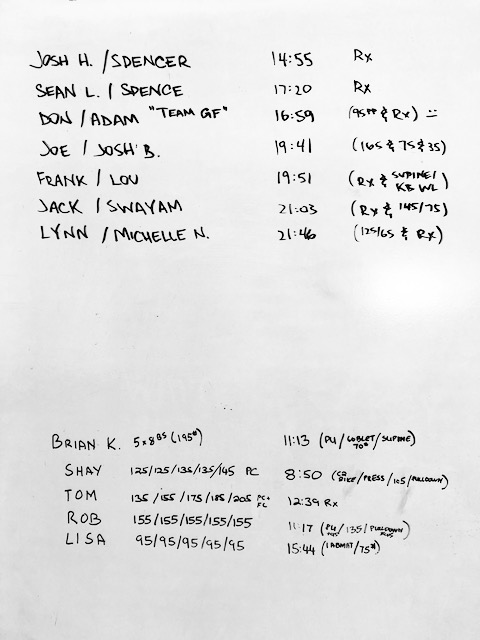 JOSH H. / SPENCER 14:55 Rx
SEAN L. / SPENCE 17:20 Rx
DON / ADAM "TEAM GF" 16:59 (95## & Rx)
JOE / JOSH B. 19:41 (165 & 75 & 35)
FRANK / LOU 19:51 (Rx & SUPINE/ KB WL)
JACK / SWAYAM 21:03 (Rx & 145/75)
LYNN / MICHELLE N. 21:46 (125/65 & Rx)
BRIAN K. 5x8 BS (195#) 11:13 (PU/GOBLET 70#/SUPINE)
SHAY 125/125/135/135/145 PC 8:50 (C2 BIKE/PRESS/105/PULLDOWN)
TOM 135/155/175/185/205 PC+ FC 12:39 Rx
ROB 155/155/155/155/155 11:17 (PU/135/PULLDOWN PLUS)
LISA 95/95/95/95/95 15:44 (1 ABMAT/75#)